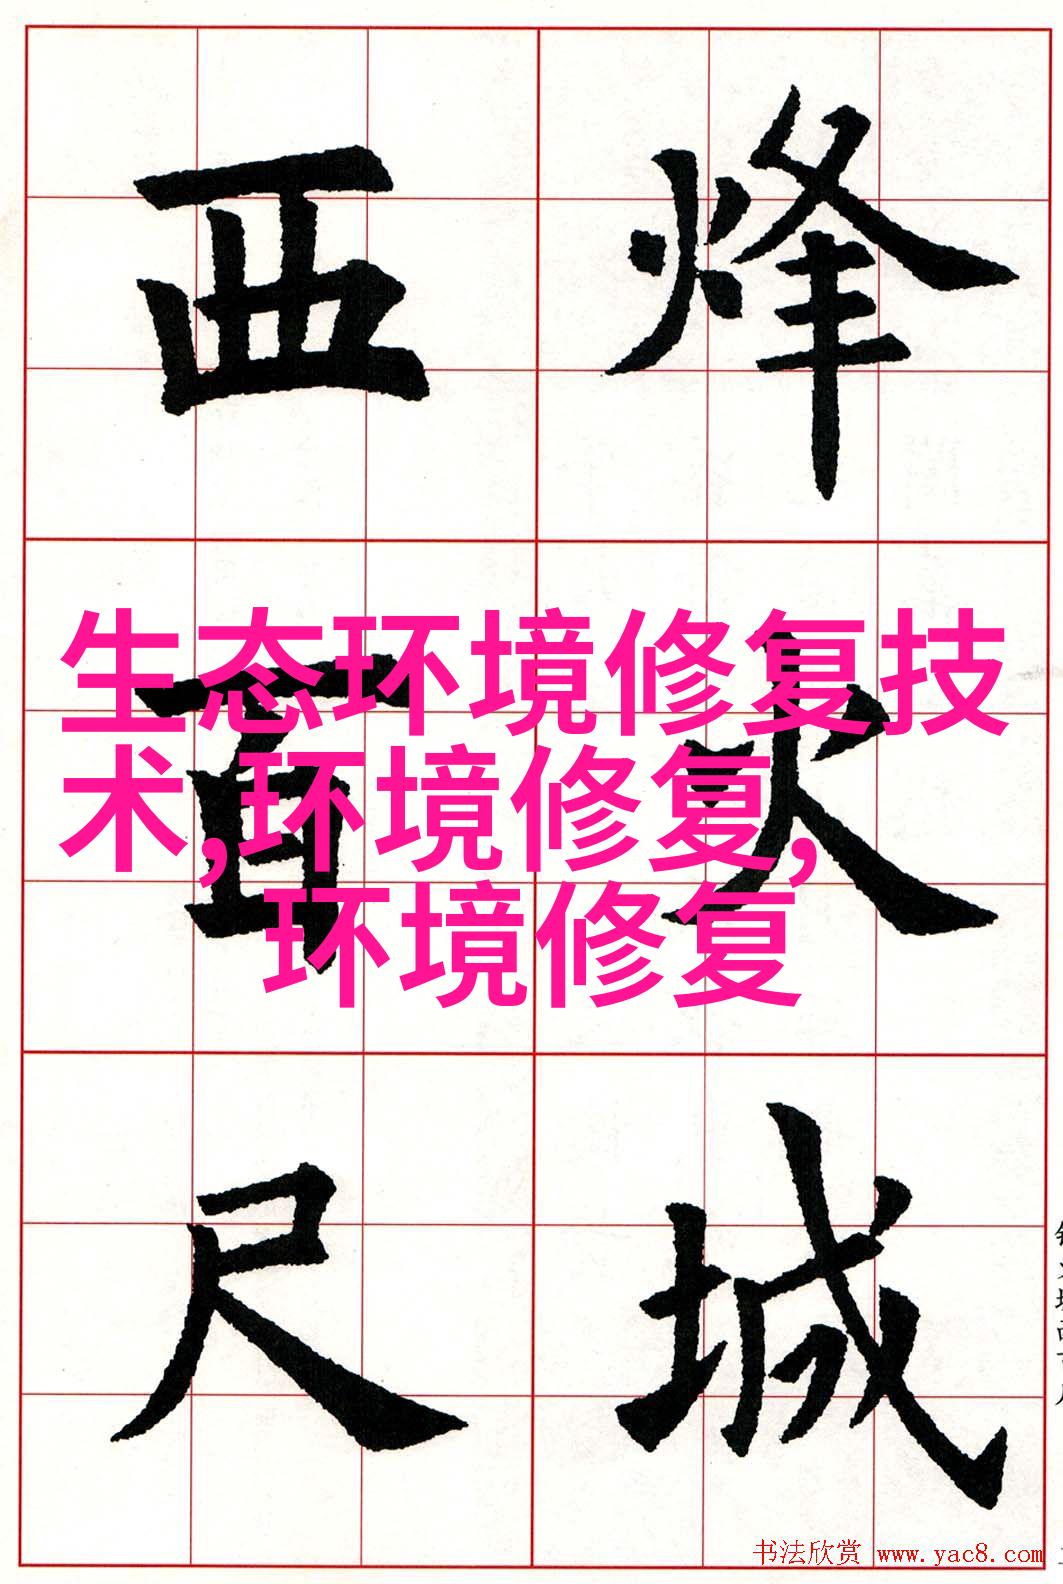 烽火城
西百尺
生态环境修复技
术,环境修复,
环境修复
书法欣赏 www.yac8.com